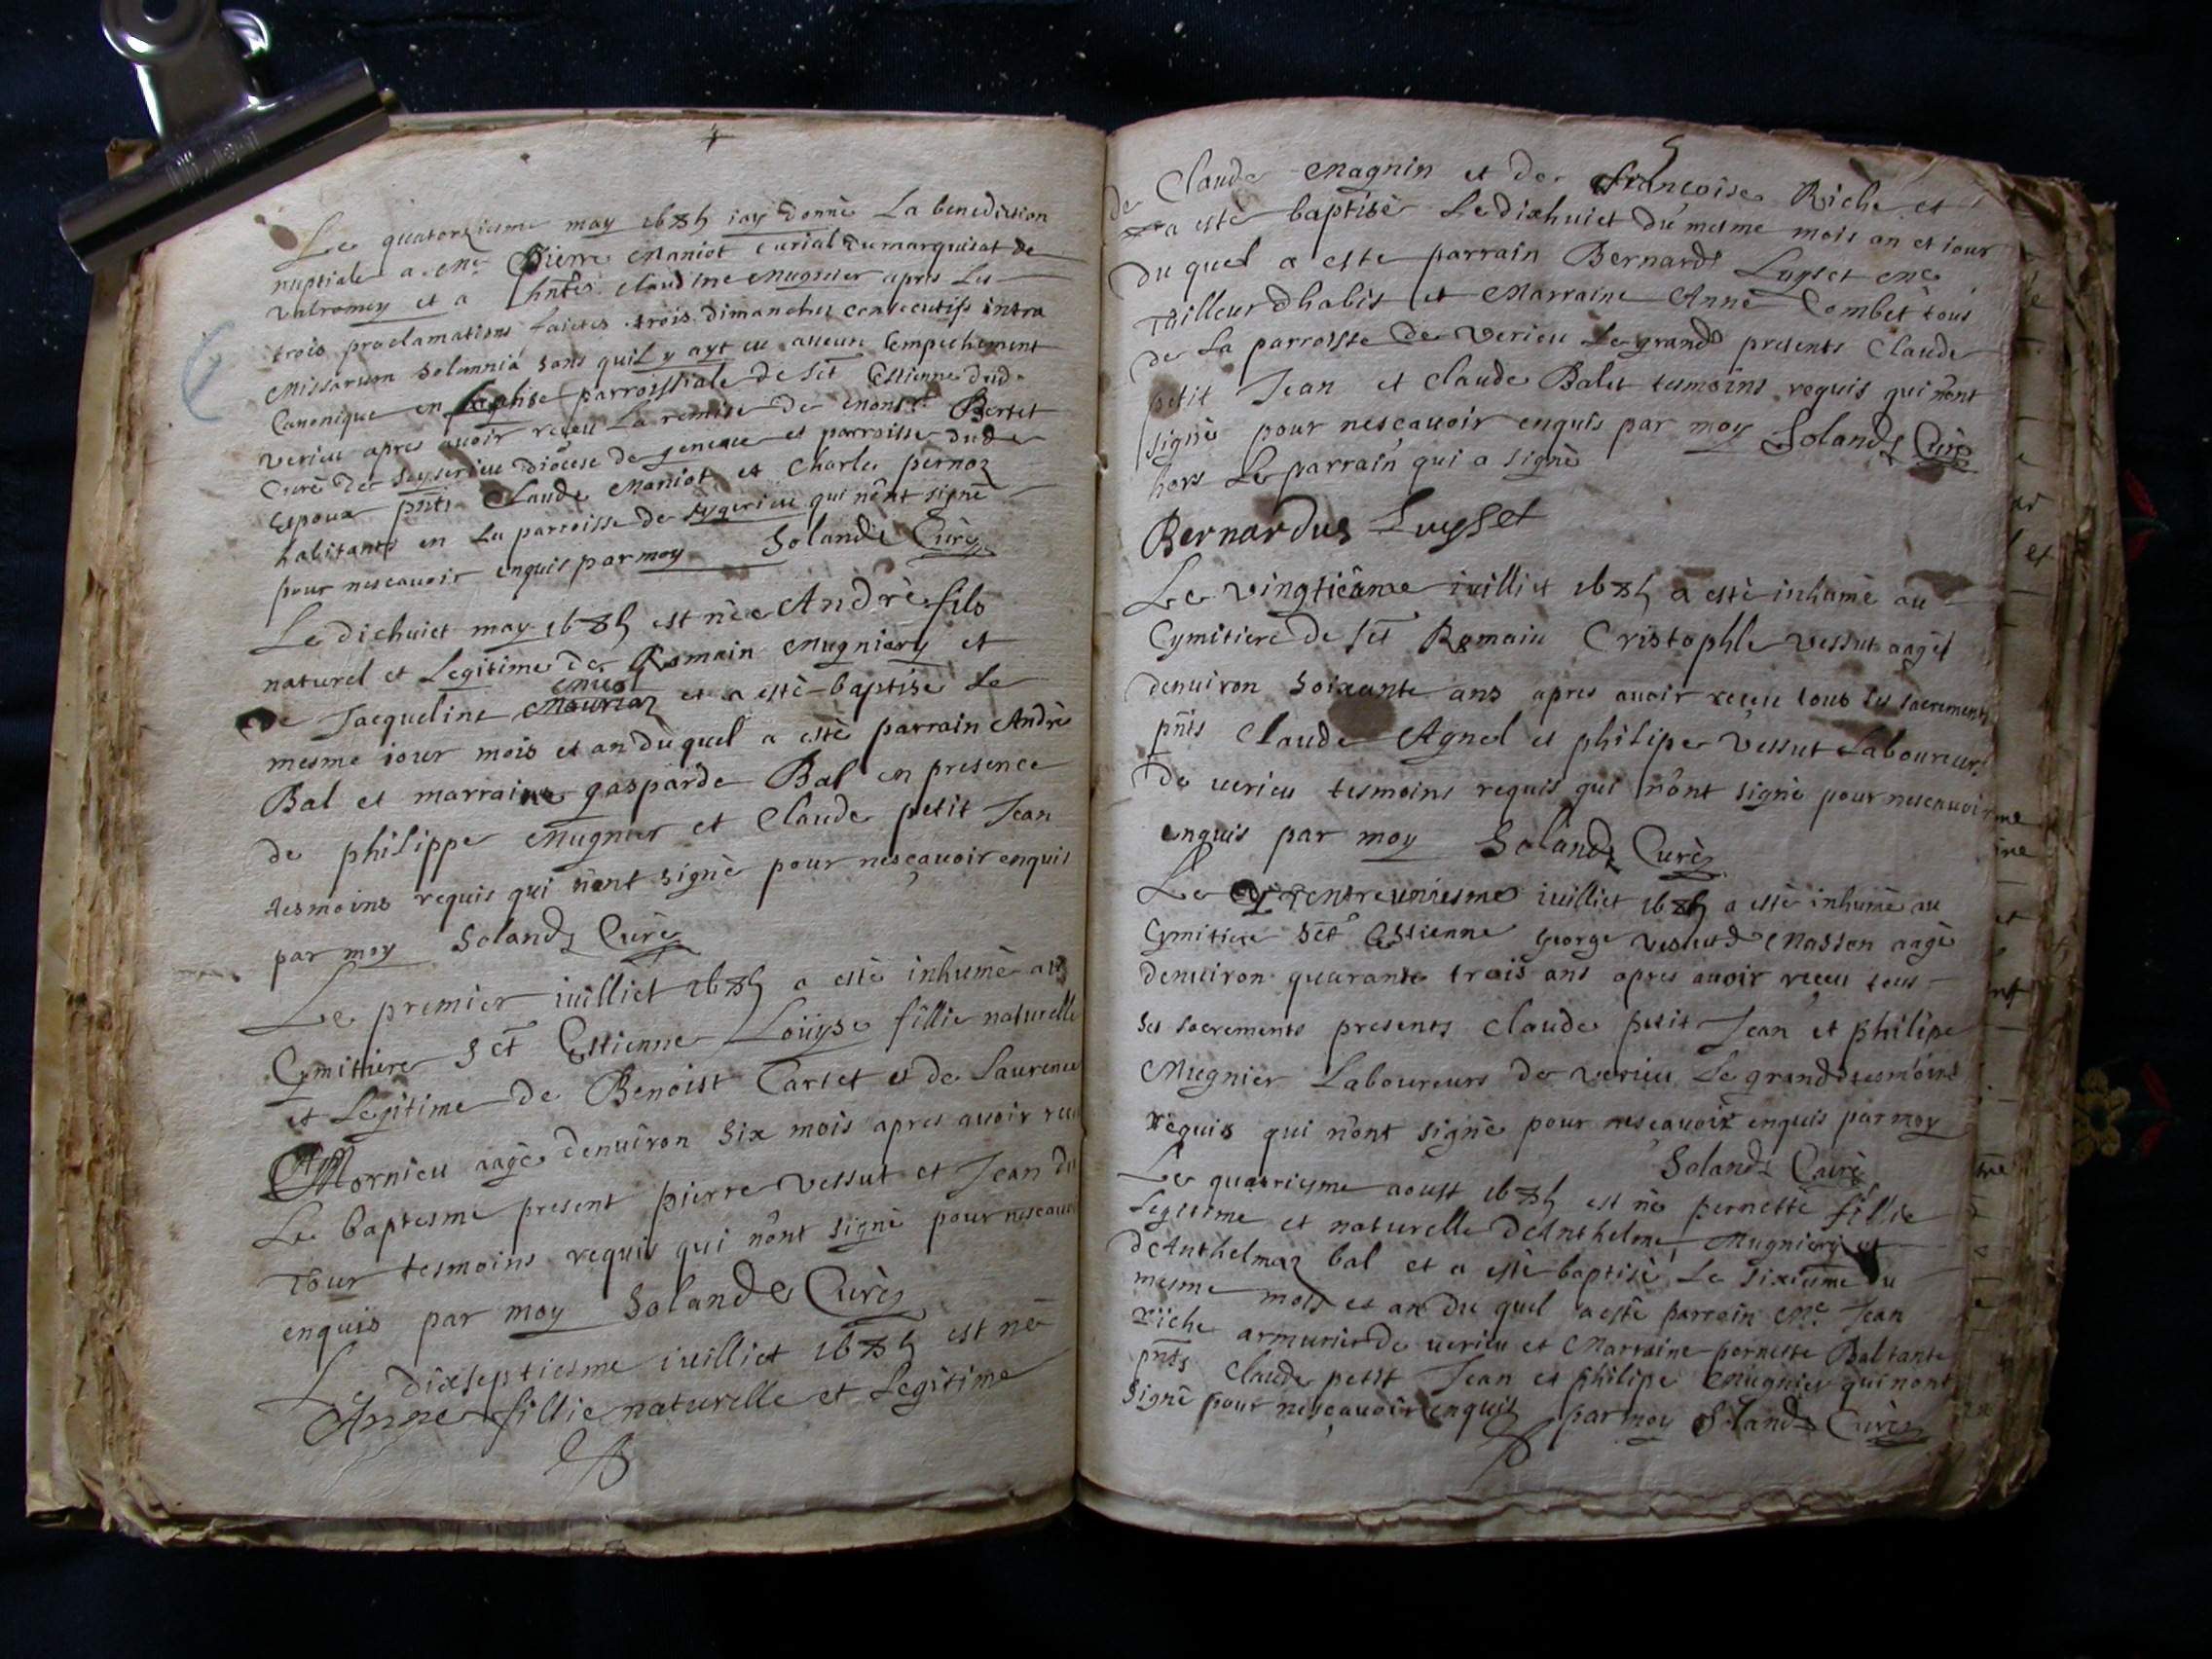 4
Le quatorziesme may 1685 iay donnè La benediction
nuptiale a Me Pierre Maniot curial du marquisat de
valromey et a hnte Claudine Mugnier apres Les
trois proclamations faictes trois dimanches consecutifs intra
Missarum Solemnia sans quil y ayt eu aucun Empechement
Canonique en Leglise parroissiale de sct Estienne dud
verieu apres avoir reçeu La remise de monsr Bertet
Curè de Seyserieu diocese de geneve et parroisse dude
Espoux pnts Claude Maniot et Charles pernoz
habitants en La parroisse de sugerieu qui nont signè
pour nescauoir enquis par moy Soland Curè
Le dichuict may 1685 est nèe Andrè fils
naturel et Legitime de Romain Mugniery et
de Jacqueline et a estè baptise Le
mesme iour mois et an duquel a estè parrain Andrè
Bal et marraine gasparde Bal en presence
de philippe Mugnier et Claude petit Jean
tesmoins requis qui nont signè pour nesçauoir enquis
par moy Soland Curè
Le premier iuilliet 1685 a estè inhumè au
Cymitiere sct Estienne Loüyse fillie naturelle
et Legitime de Benoist Carlet et de Laurence
Mornieu aagèe denuiron six mois apres avoir
Le baptesme present pierre vessut et Jean du
Tour tesmoins requis qui nont signè pour
enquis par moy Soland Curè
Le dixseptiesme iuilliet 1685 est nèe
Anne fillie naturelle et Legitime
5
de Claude Magnin et de francoise Riche et
a estè baptisèe Le dixhuict du mesme mois an et iour
du quel a este parrain Bernard Luyset me
Tailleur dhabis et Marraine Anne Combet tous
de La parroisse de verieu Le grand presents Claude
petit Jean et Claude Balet tesmoins requis qui nont
signès pour nesçauoir enquis par moy Soland Curè
hors Le parrain qui a signè
Bernardus Luysset
Le vingtiesme iuilliet 1685 a estè inhumè au
Cymitiere de sct Romain Cristophle vessut aagè
denuiron soixante ans apres auoir reçeu tous les sacrements
pnts Claude Agnel et philipe vessut Laboureurs
de uerieu tesmoins requis qui nont signè pour nescauoir
enquis par moy Soland Curè
Le trentreuniesme iuilliet 1685 a estè inhumè au
Cymitiere sct Estienne George Vessut Masson aagè
denuiron quarante trois ans apres auoir reçeu tous
ses sacrements presents Claude petit Jean et philipe
Mugnier Laboureurs de verieu Le grand tesmoins
requis qui nont signè pour nesçauoir enquis par moy
Soland Curè
Le quatriesme aoust 1685 est nèe pernette fillie
Legitime et naturelle dAnthelme Mugniery et
dAnthelmaz bal et a estè baptisèe Le sixiesme du
mesme mois et an du quel a estè parrain Me Jean
riche armurier de uerieu et Marraine pernette Bal tante
pnts Claude petit Jean et philipe Mugnier qui nont
signè pour nesçauoir enquis par moy Soland Curè